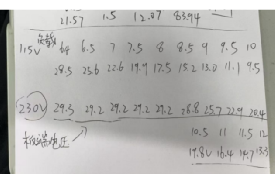 21.57 1.5 12.07 83.94
115V 6 6.5 7 7.5 8 8.5 9 9.5 10
28.5 25.6 22.6 19.9 17.5 15.2 13.0 11.1 9.5
230V 29.3 29.2 29.2 29.2 29.2 26.8 25.7 22.9 20.4
10.5 11 11.5 12
19.8V 16.4 14.7 13.3